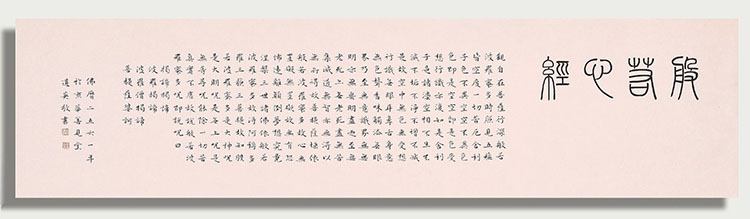 般若心經
觀自在菩薩行深般若
波羅蜜多時照見五蘊
皆空度一切苦厄舍利
子色不異空空不異色
色即是空空即是色受
想行識亦復如是舍利
子是諸法空相不生不
滅不垢不淨不增不減
是故空中無色無受想
行識無眼耳鼻舌身意
無色聲香味觸法無眼
界乃至無意識界無無
明亦無無明盡乃至無
老死亦無老死盡無苦
集滅道無智亦無得以
無所得故菩提薩埵依
般若波羅蜜多故心無
罣礙無罣礙故無有恐
怖遠離顛倒夢想究竟
涅槃三世諸佛依般若
波羅蜜多故得阿耨多
羅三藐三菩提故知般
若波羅蜜多是大神呪
是大明呪是無上呪是
無等等呪能除一切苦
真實不虛故說般若波
羅蜜多呪即說呪曰
揭諦揭諦
波羅揭諦
波羅僧揭諦
菩提薩婆訶
佛曆二五六一年
於京華善見堂
道英敬書